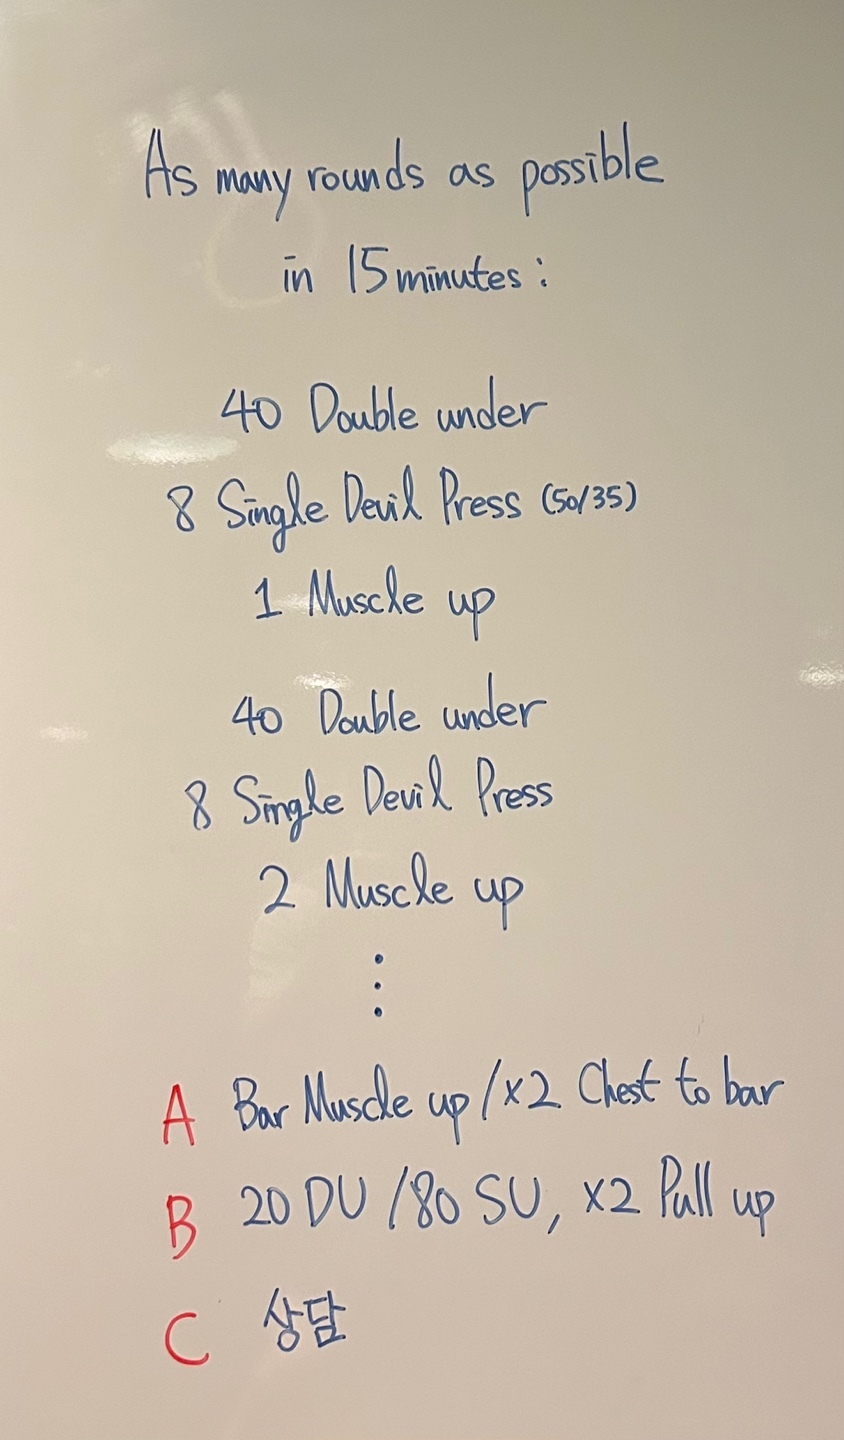 As many rounds as possible
in 15 minutes:
40 Double under
8 Single Devil Press (50/35)
1 Muscle up
40 Double under
8 Single Devil Press
2 Muscle up
⋮
A Bar Muscle up/x2 Chest to bar
B 20 DU/80 SU, x2 Pull up
C 상담